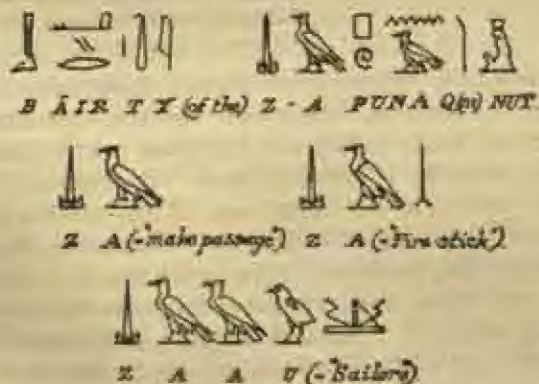 B ĀIR T Y (of the) Z - A PUNA Q(ni) NUT
Z A (-"make passage") Z A (-"Fire stick")
Z A A U (-"Sailors")